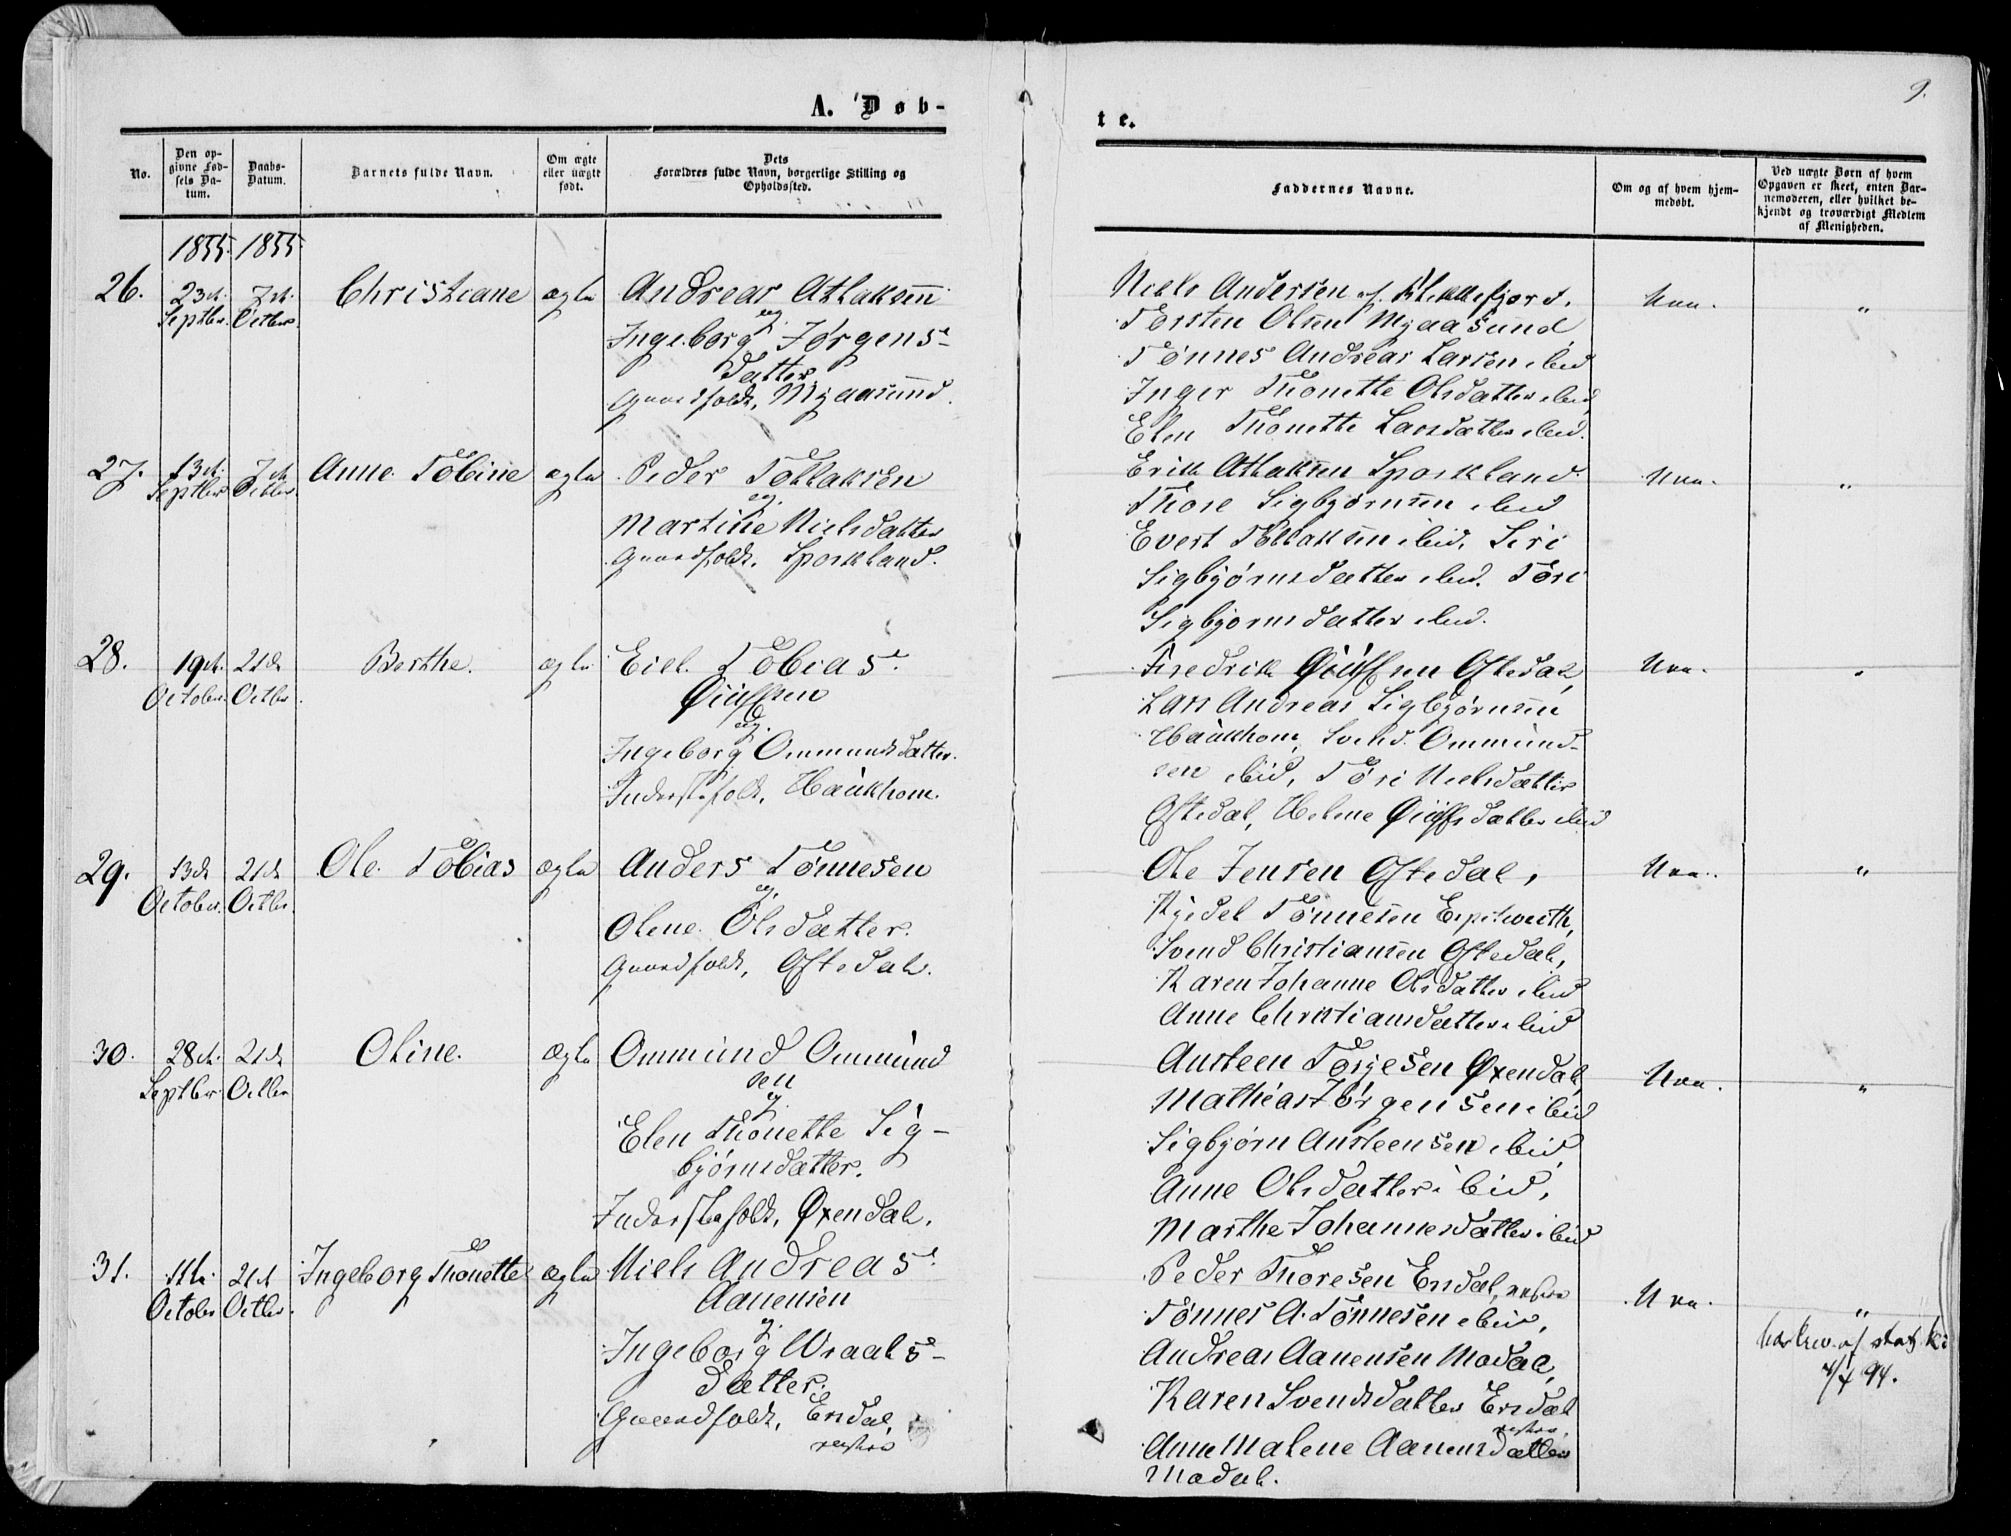 9.
A. Døb-
te.
No.
Den op-
givne Fød-
sels Da-
tum.
Daabs-
Datum.
Barnets fulde Navn.
Om ægte
eller uægte
født.
Dets
Forældres fulde Navn, borgerlige Stilling og
Opholdssted.
Faddernes Navne.
Om og af hvem hjem-
medøbt.
Ved uægte Børn af hvem
Opgaven er skeet, enten Bar-
nemoderen, eller hvilket be-
kjendt og troværdigt Medlem
af Menigheden.
1855. 1855
26.
23d.
Septbr.
7d.
Octbr.
Christiane
ægte
Andreas Atlaksen
og
Ingeborg Jørgens-
datter,
Gaardfolk, Mjaasund.
Niels Andersen af Flekkefjord.
Torsten Olsen Mjaasund
Tønnes Andreas Larsen ibid
Inger Thonette Olsdatter ibid,
Elen Thonette Larsdatter ibid.
"
27.
13d.
Septbr
7d
Octbr.
Anne Tobine
ægte
Peder Tollaksen
og
Martine Nielsdatter
Gaardfolk. Sporkland.
Erik Atlaksen Sporkland.
Thore Sigbjørnsen ibid
Evert Tollaksen ibid, Siri
Sigbjørnsdatter ibid. Tori
Sigbjørnsdatter ibid.
"
28.
19d.
October.
21d
Octbr
Berthe.
ægte
Eiel Tobias
og
Ingeborg Ommundsdatter.
Inderstfolk, Haukhom.
Fredrik Oftedal,
Lars Andreas Sigbjørnsen
Haukhom, Svend Ommund-
sen ibid, Tøri Nielsdatter
Oftedal, Helene datter ibid
"
29.
13d
October.
21d
Octbr
Ole Tobias
ægte
Anders Tønnesen
og
Olene Olsdatter.
Gaardfolk, Oftedal.
Ole Jensen Oftedal,
Kjedel Tønnesen
Svend Christiansen Oftedal,
Karen Johanne Olsdatter ibid
Anne Christiansdatter ibid
"
30.
28d.
Septbr
21d
Octbr
Oline.
ægte
Ommund Ommund
sen
og
Elen Thonette Sig-
bjørnsdatter.
Inderstefolk, Øxendal.
Ansteen Torjesen Øxendal,
Mathias Jørgensen ibid
Sigbjørn Ansteensen ibid,
Anne Olsdatter ibid,
Marthe Johannesdatter ibid
"
31.
11te
October
21d
Octbr.
Ingeborg Thonette
ægte
Niels Andreas
Aanensen
og
Ingeborg Wraals-
datter.
Gaardfolk, Ersdal,
vestre
Peder Thoresen Ersdal, vestre
Tønnes A. Tønnesen ibid,
Andreas Aanensen Modal,
Karen Svendsdatter Ersdal
vestre,
Anne Malene Aanensdatter
Modal.
"
af
94.